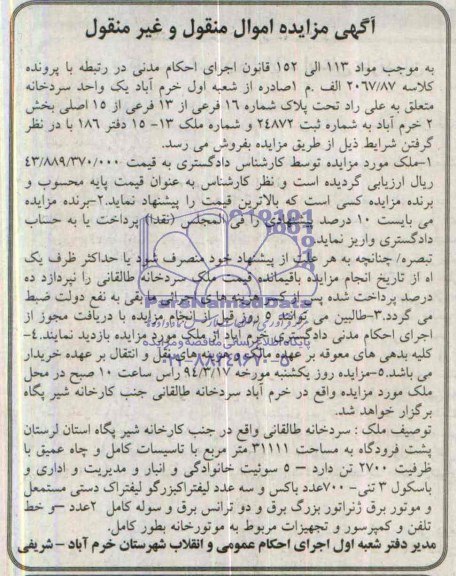 آگهی مزایده اموال منقول و غیر منقول
به موجب مواد ۱۱۳ الی ۱۵۲ قانون اجرای احکام مدنی در رتبطه با پرونده
کلاسه ۲۰۶۷/۸۷ الف .م ۱صادره از شعبه اول خرم آباد یک واحد سردخانه
متعلق به علی راد تحت پلاک شماره ۱۶ فرعی از ۱۳ فرعی از ۱۵ اصلی بخش
۲ خرم آباد به شماره ثبت ۲۴۸۷۲ و شماره ملک ۱۳- ۱۵ دفتر ۱۸۶ با در نظر
گرفتن شرایط ذیل از طریق مزایده بفروش می رسد.
۱-ملک مورد مزایده توسط کارشناس دادگستری به قیمت ۴۳/۸۸۹/۳۷۰/۰۰۰
ریال ارزیابی گردیده است و نظر کارشناس به عنوان قیمت پایه محسوب و
برنده مزایده کسی است که بالاترین قیمت را پیشنهاد نماید.۲-برنده مزایده
می بایست ۱۰ درصد پیشنهادی را فی المجلس (نقدا) پرداخت یا به حساب
دادگستری واریز نماید.
تبصره/ چنانچه به هر علت از پیشنهاد خود منصرف شود یا حداکثر ظرف یک
اه از تاریخ انجام مزایده باقیمانده قیمت ملک سردخانه طالقانی را نپردازد ده
درصد پرداخت شده پس از کسر هزینه های اجرایی مابقی به نفع دولت ضبط
می گردد.۳-طالبین می توانند ۵ روز قبل از انجام مزایده با دریافت مجوز از
اجرای احکام مدنی دادگستری خرم آباد از ملک مورد مزایده بازدید نمایند.۴-
کلیه بدهی های معوقه بر عهده مالک و هزینه های نقل و انتقال بر عهده خریدار
می باشد.۵-مزایده روز یکشنبه مورخه ۹۴/۳/۱۷ راس ساعت ۱۰ صبح در محل
ملک مورد مزایده واقع در خرم آباد سردخانه طالقانی جنب کارخانه شیر پگاه
برگزار خواهد شد.
توصیف ملک : سردخانه طالقانی واقع در جنب کارخانه شیر پگاه استان لرستان
پشت فرودگاه به مساحت ۳۱۱۱۱ متر مربع با تاسیسات کامل و چاه عمیق با
ظرفیت ۲۷۰۰ تن دارد – ۵ سوئیت خانوادگی و انبار و مدیریت و اداری و
باسکول ۳ تنی- ۷۰۰عدد پاکس و سه عدد لیفتراکبزرگو لیفتراک دستی مستمعل
و موتور برق ژنراتور بزرگ برق و دو ترانس برق و سوله کامل ۲عدد –و خط
تلفن و کمپرسور و تجهیزات مربوط به موتورخانه بطور کامل.
مدیر دفتر شعبه اول اجرای احکام عمومی و انقلاب شهرستان خرم آباد – شریفی
ParsNamadData
پایگاه اطلاع رسانی مناقصه و مزایده
۰۲۱-۸۸۳۴۹۶۷۰-۵